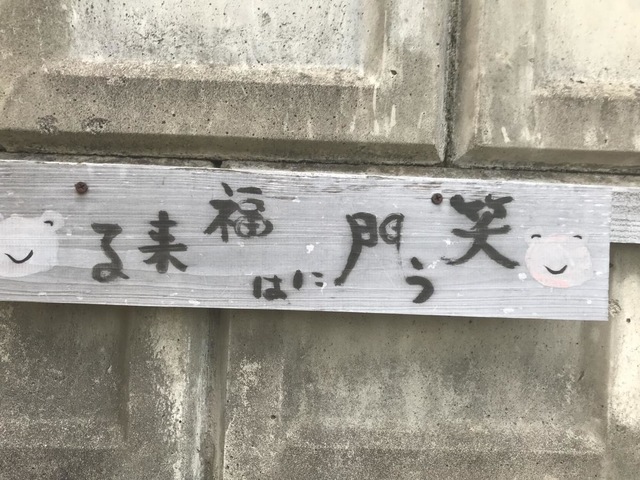 笑う門には福来る